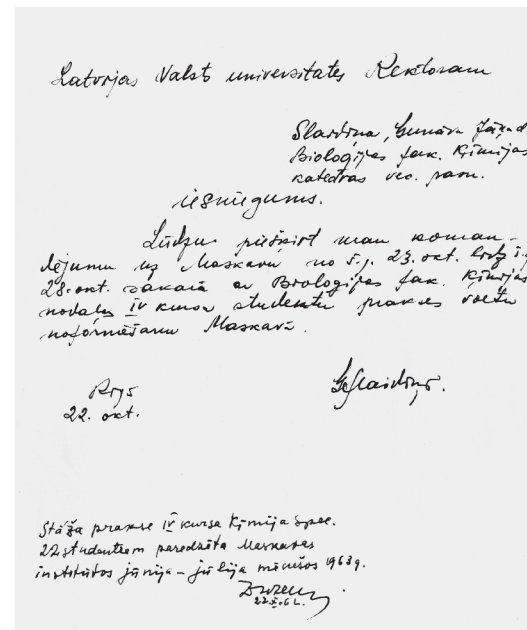 Latvijas Valst universitates Rektoram
Slaidiņa, Gunāra Jāņa d.
Bioloģijas fak. Ķīmijas
katedras vec. pasn.
iesniegums.
Lūdzu piešķirt man koman-
dējumu uz Maskavu no š.g. 23. okt. līdz š.g.
28. okt. sakarā ar Bioloģijas fak. Ķīmijas
nodaļas IV kursa studentu prakses vietu
noformēšanu Maskavā.
Rīgā
22. okt.
GSlaidiņš.
Stāža prakse IV kursa Ķīmija spec.
22 studentiem paredzēta Maskavas
institūtos jūnija – jūlija mēnešos 1963 g.
22.X.62.